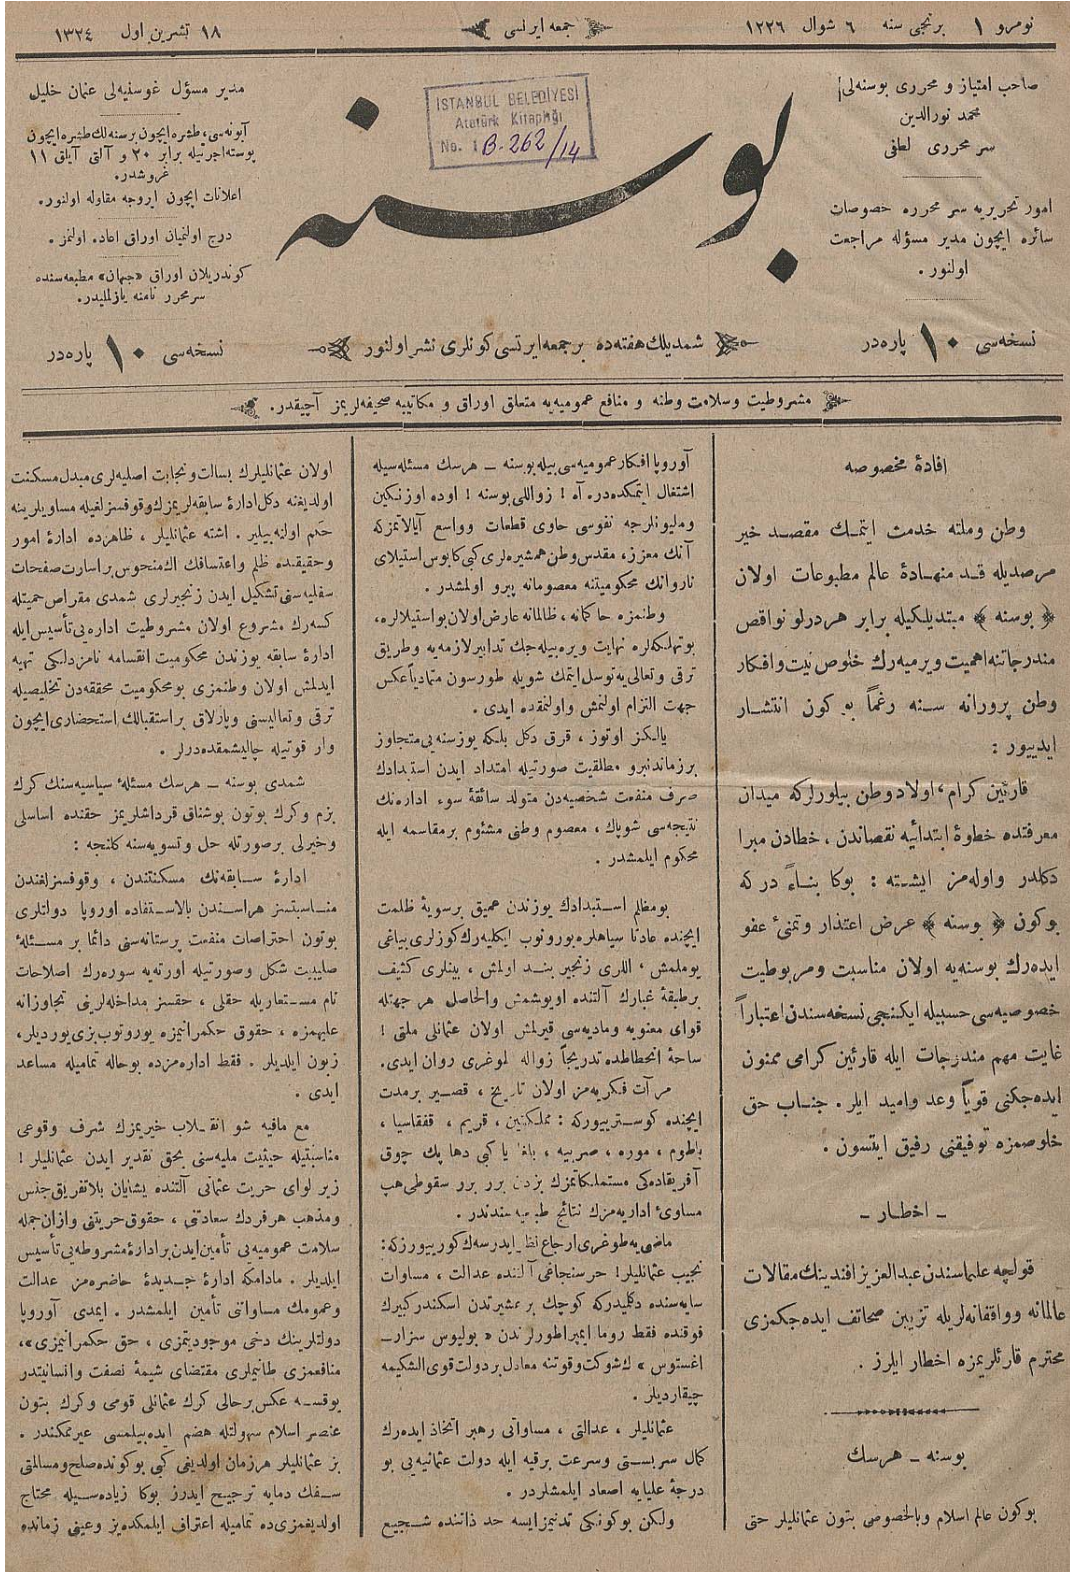 نومرو ۱ برنجی سنه ۶ شوال ۱۲۲۶
جمعه ایرتسی
۱۸ تشرین اول ۱۳۲٤
صاحب امتیاز و محرری بوسنه‌لی
محمد نورالدین
سر محرری لطفی
امور تحریریه سر محرره خصوصات
سائره ایچون مدیر مسؤله مراجعت
اولنور .
نسخه‌سی ۱۰ پاره‌در
İSTANBUL BELEDİYESİ
Atatürk Kitaplığı
No. B-262/14
بوسنه
شمدیلك هفته‌ده بر جمعه ایرتسی کونلری نشر اولنور
مدیر مسؤل غوسنیه‌لی عثمان خلیل
آبونه‌سی، طشره ایچون برسنه‌لك طشره ایچون
پوسته اجرتیله برابر ۲۰ و آلتی آیلق ۱۱
غروشدر.
اعلانات ایچون ایروجه مقاوله اولنور.
درج اولنمیان اوراق اعاده اولنمز .
کوندریلان اوراق «جهان» مطبعه‌سنده
سرمحرر نامنه یازلملیدر.
نسخه‌سی ۱۰ پاره‌در
مشروطیت وسلامت وطنه و منافع عمومیه‌یه متعلق اوراق و مکاتیبه صحیفه‌لریمز آچیقدر.
افادهٔ مخصوصه
وطن وملته خدمت ایتمك مقصد خیر
مرصدیله قدمنهادهٔ عالم مطبوعات اولان
﴿ بوسنه ﴾ مبتدیلکیله برابر هردرلو نواقص
مندرجاتنه اهمیت ویرمیه‌رك خلوص نیت وافکار
وطن پرورانه سنه رغماً بوکون انتشار
ایدییور :
قارئین کرام، اولاد وطن بیلورلرکه میدان
معرفتده خطوهٔ ابتدائیه نقصاندن ، خطادن مبرا
دکلدر واوله‌مز ایشته : بوکا بناءً درکه
بوکون ﴿ بوسنه ﴾ عرض اعتذار وتمنیٔ عفو
ایده‌رك بوسنه‌یه اولان مناسبت ومربوطیت
خصوصیه‌سی حسبیله ایکنجی نسخه‌سندن اعتباراً
غایت مهم مندرجات ایله قارئین کرامی ممنون
ایده‌جکنی قویاً وعد وامید ایلر . جناب حق
خلوصمزه توفیقنی رفیق ایتسون .
ـ اخطار ـ
قولچه علماسندن عبدالعزیز افندینك مقالات
عالمانه وواقفانه‌لریله تزیین صحائف ایده‌جکمزی
محترم قارئلریمزه اخطار ایلرز .
بوسنه ـ هرسك
بوکون عالم اسلام وبالخصوص بتون عثمانلیلر حتی
آوروپا افکار عمومیه‌سی بیله بوسنه ـ هرسك مسئله‌سیله
اشتغال ایتمکده‌در. آه ! زواللی بوسنه ! اوده اوزنکین
وملیونلرجه نفوسی حاوی قطعات وواسع آیالاتمزکه
آنك معزز، مقدس وطن همشیره‌لری کبی کابوس استیلای
ناروانك محکومیتنه معصومانه پیرو اولمشدر .
وطنمزه حاکمانه ، ظالمانه عارض اولان بواستیلالره،
بوتهلکه‌لره نهایت ویره‌بیله‌جك تدابیر لازمه‌یه وطریق
ترقی وتعالی‌یه توسل ایتمك شویله طورسون متمادیاً عکس
جهت التزام اولنمش واولنمقده ایدی .
یالکز اوتوز ، قرق دکل بلکه یوزسنه‌یی متجاوز
برزماندنبرو مطلقیت صورتیله امتداد ایدن استبدادك
صرف منفعت شخصیه‌دن متولد سائقهٔ سوء اداره‌نك
نتیجه‌سی شوپاك ، معصوم وطنی مشئوم برمقاسمه ایله
محکوم ایلمشدر .
بومظلم استبدادك یوزندن عمیق برسویهٔ ظلمت
ایچنده عادتا سیاهلره بورونوب ایکلیه‌رك کوزلری بیاغی
یوملمش ، اللری زنجیر بند اولمش ، بینلری کثیف
برطبقهٔ غبارك آلتنده اویوشمش والحاصل هر جهتله
قوای معنویه ومادیه‌سی قیرلمش اولان عثمانلی ملتی !
ساحهٔ انحطاطده تدریجاً زواله طوغری روان ایدی.
مرآت فکریه‌مز اولان تاریخ ، قصیر برمدت
ایچنده کوسترییورکه : مملکتین ، قریم ، قفقاسیا ،
باطوم ، موره ، صربیه ، یا کبی دها پك چوق
آفریقاده‌کی مستملکاتمزك بزدن برر برر سقوطی هپ
مساویٔ اداریه‌مزك نتائج طبیعیه‌سندندر .
ماضی‌یه طوغری ارجاع نظر ایدرسه‌ك کورییورزکه:
نجیب عثمانلیلر! حر سنجاغی آلتنده عدالت ، مساوات
سایه‌سنده دکلیدرکه کوچك بر عشیرتدن اسکندر کبیرك
فوقنده فقط روما ایمپراطورلرندن « یولیوس سزارـ
اغستوس » ك شوکت وقوتنه معادل بردولت قوی الشکیمه
چیقاردیلر .
عثمانلیلر ، عدالتی ، مساواتی رهبر اتخاذ ایده‌رك
کمال سربستی وسرعت برقیه ایله دولت عثمانیه‌یی بو
درجهٔ علیایه اصعاد ایلمشلردر .
ولکن بوکونکی تدنیمز ایسه حد ذاتنده شجیع
اولان عثمانلیلرك بسالت ونجابت اصلیه‌لری مبدل مسکنت
اولدیغنه دکل ادارهٔ سابقه‌لریمزك وقوفسزلغیله مساویلرینه
حکم اولنه‌بیلیر . اشته عثمانلیلر ، ظاهرده ادارهٔ امور
وحقیقده ظلم واعتسافك اك منحوس براسارت صفحات
سفلیه‌سنی تشکیل ایدن زنجیرلری شمدی مقراض حمیتله
کسه‌رك مشروع اولان مشروطیت اداره‌یی تأسیس ایله
ادارهٔ سابقه یوزندن محکومیت انقسامه نامزدلکی تهیه
ایدلمش اولان وطنمزی بومحکومیت محققه‌دن تخلیصیله
ترقی وتعالیسنی وپارلاق براستقبالك استحضاری ایچون
وار قوتیله چالیشمقده‌درلر .
شمدی بوسنه ـ هرسك مسئلهٔ سیاسیه‌سنك کرك
بزم وکرك بوتون بوشناق قرداشلریمز حقنده اساسلی
وخیرلی برصورتله حل وتسویه‌سنه کلنجه :
ادارهٔ سابقه‌نك مسکنتندن ، وقوفسزلغندن
مناسبتسز هراسندن بالاستفاده اوروپا دولتلری
بوتون احتراصات منفعت پرستانه‌سنی دائما بر مسئلهٔ
صلیبیت شکل وصورتیله اورته‌یه سوره‌رك اصلاحات
نام مستعاریله حقلی ، حقسز مداخله‌لرینی تجاوزانه
علیهمزه ، حقوق حکمرانیمزه یورتوب بزی یوردیلر،
زبون ایلدیلر . فقط اداره‌مزده بوحاله تمامیله مساعد
ایدی .
مع مافیه شو انقلاب خیریمزك شرف وقوعی
مناسبتیله حیثیت ملیه‌سنی بحق تقدیر ایدن عثمانلیلر !
زیر لوای حریت عثمانی آلتنده یشایان بلاتفریق جنس
ومذهب هرفردك سعادتنی ، حقوق حریتنی وازان جمله
سلامت عمومیه‌یی تأمین ایدن بر ادارهٔ مشروطه‌یی تأسیس
ایلدیلر . مادامکه ادارهٔ جدیدهٔ حاضره‌مز عدالت
وعمومك مساواتنی تأمین ایلمشدر . ایمدی آوروپا
دولتلرینك دخی موجودیتمزی ، حق حکمرانیمزی »،
منافعمزی طانیملری مقتضای شیمهٔ نصفت وانسانیتدر
یوقسه عکس برحالی کرك عثمانلی قومی وکرك بتون
عنصر اسلام سهولتله هضم ایده‌بیلمسی غیرممکندر .
بز عثمانلیلر هرزمان اولدیغی کبی بوکونده صلح ومسالمتی
سفك دمایه ترجیح ایدرز بوکا زیاده‌سیله محتاج
اولدیغمزی‌ده تمامیله اعتراف ایلمکده‌یز وعینی زمانده